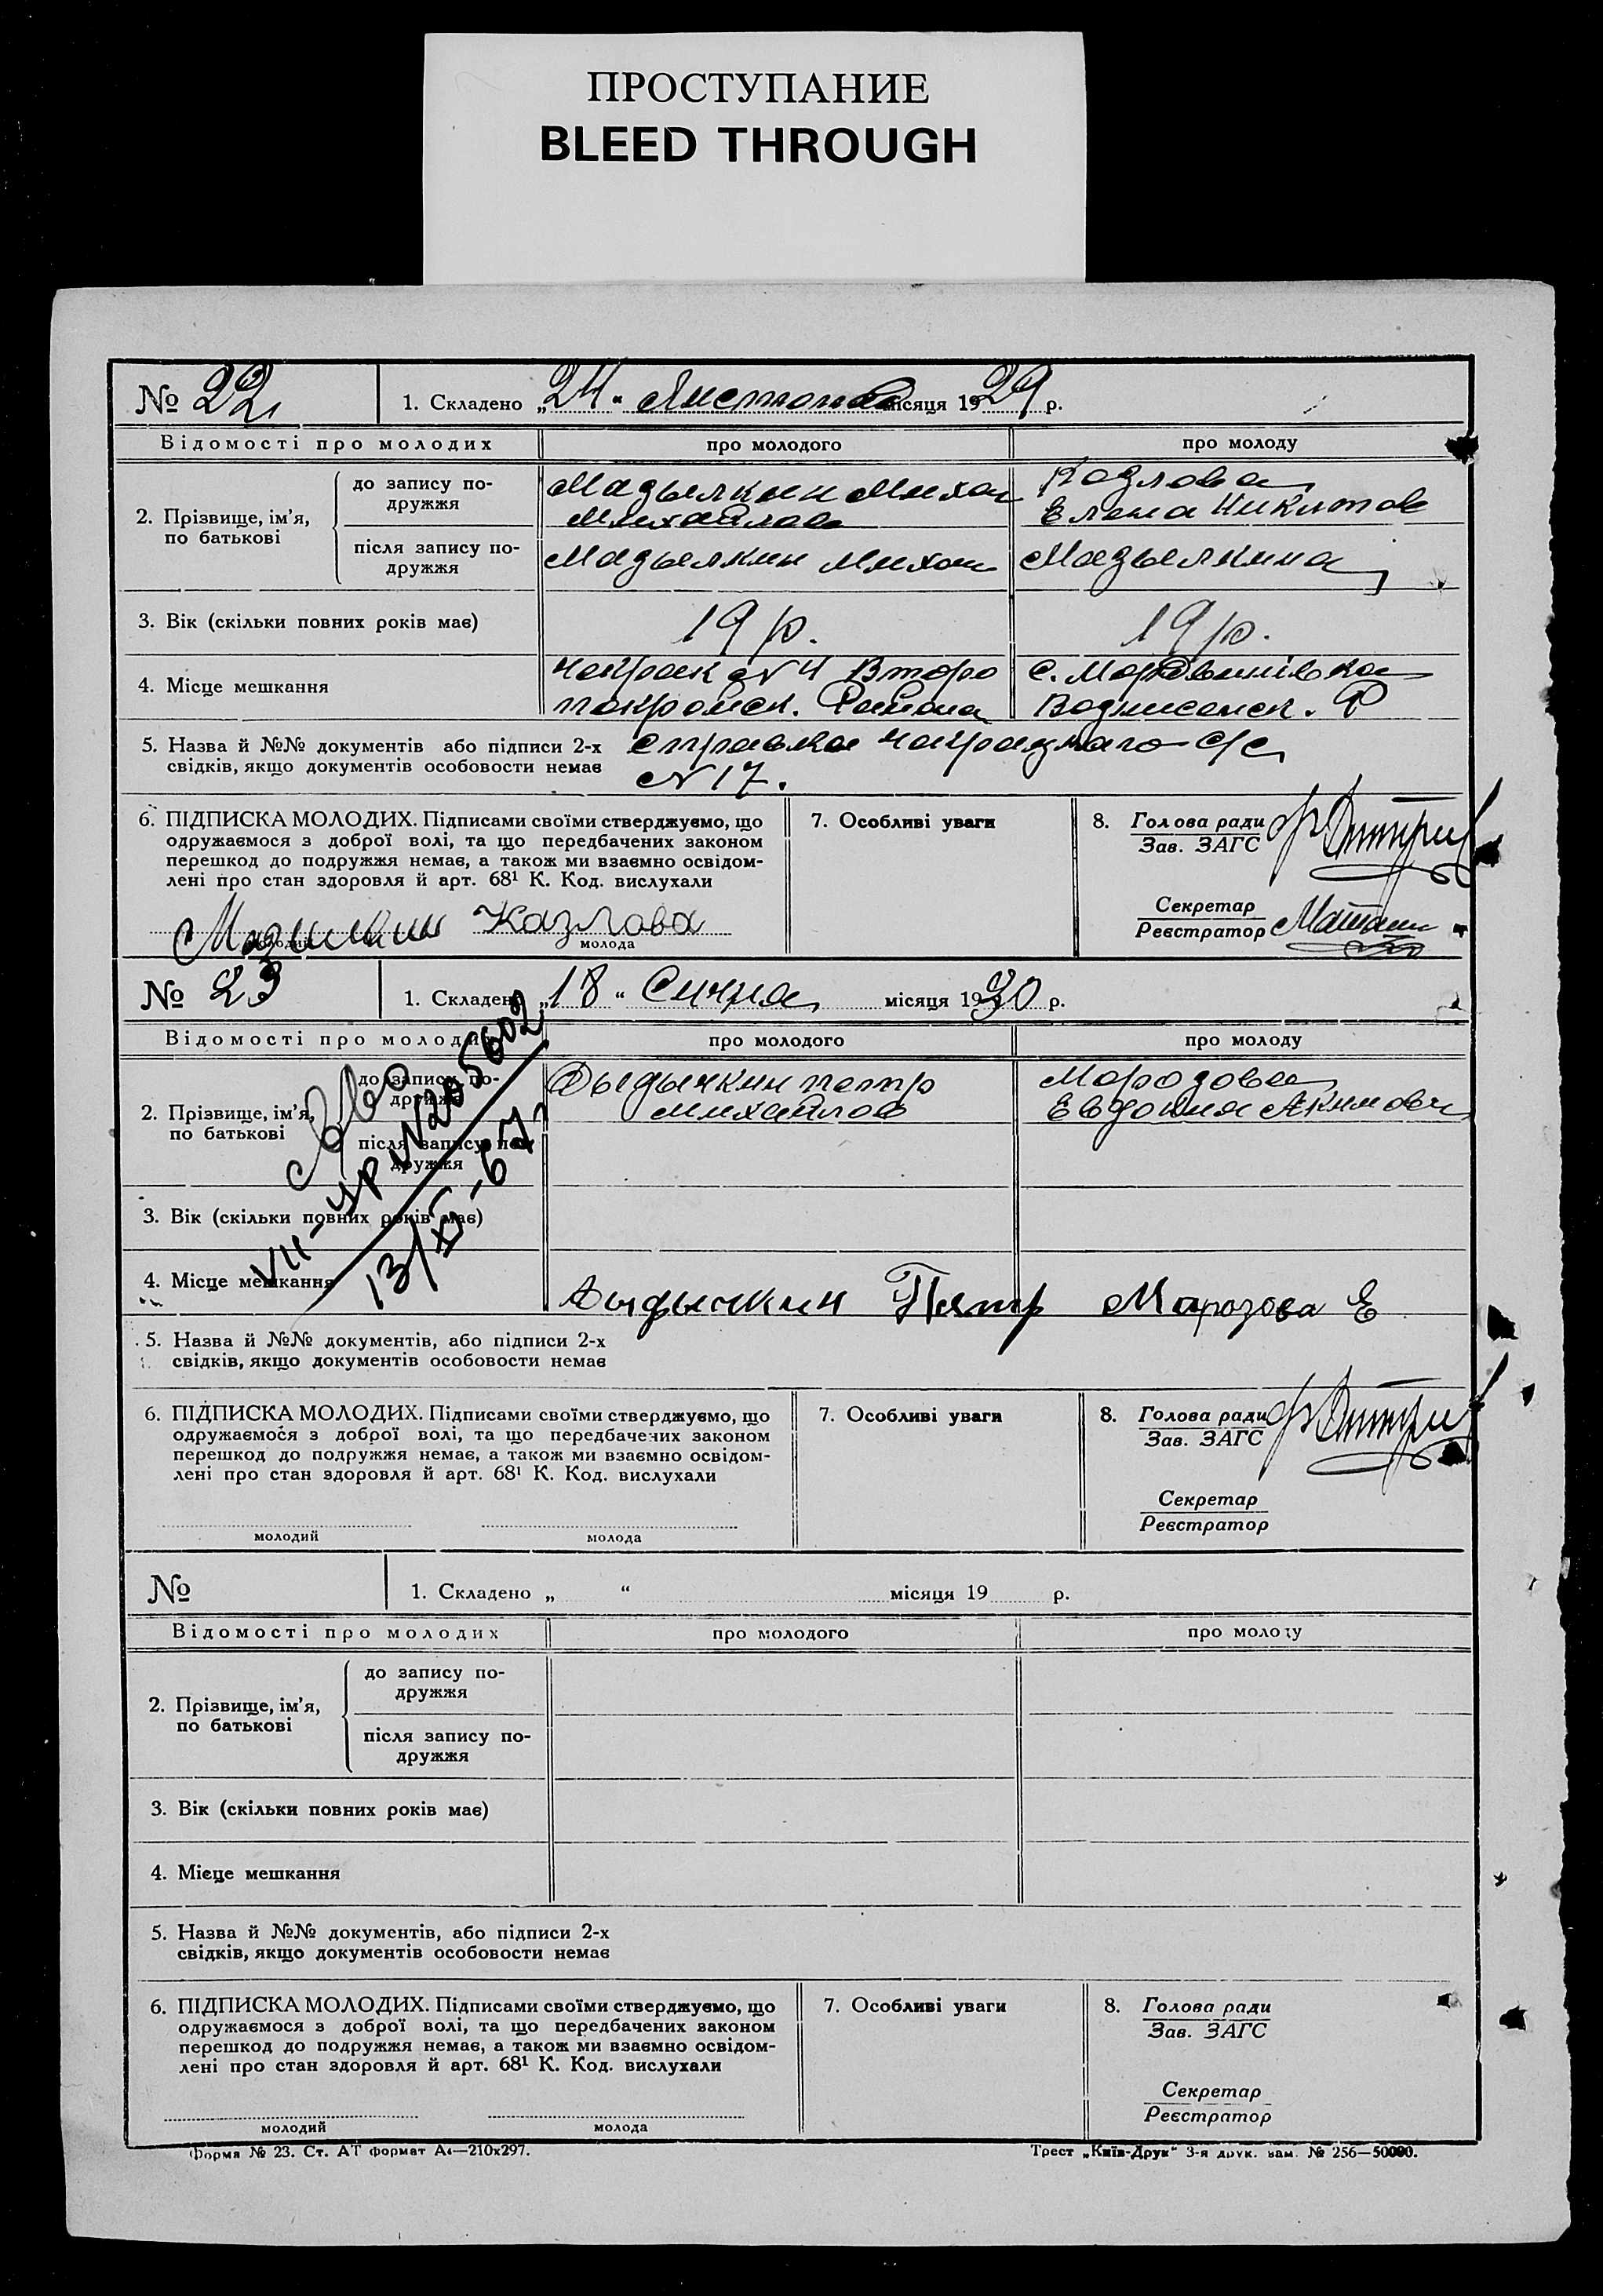 ПРОСТУПАНИЕ
BLEED THROUGH
№ 22 1. Складено „24“ Листопада місяця 1929 р.
Відомості про молодих про молодого про молоду
2. Прізвище, ім’я, по батькові
до запису по-
дружжя
Мадылкин Михаил
Михайлов
Козлова
Елена Никитов
після запису по-
дружжя
Мадылкин Михаил
Мадылкина
3. Вік (скільки повних років має) 19 р. 19 р.
4. Місце мешкання
№ 4 Второ
покровск. Района
с. Мордвинівка
5. Назва й №№ документів або підписи 2-х
свідків, якщо документів особовости немає
справка с/с
№ 17.
6. ПІДПИСКА МОЛОДИХ. Підписами своїми стверджуємо, що
одружаємося з доброї волі, та що передбачених законом
перешкод до подружжя немає, а також ми взаємно освідом-
лені про стан здоровля й арт. 68¹ К. Код. вислухали
Казлова
молодий молода
7. Особливі уваги
8. Голова ради
Зав. ЗАГС
Секретар
Реєстратор
№ 23 1. Складено „18“ Сичня місяця 1930 р.
Відомості про молодих про молодого про молоду
2. Прізвище, ім’я,
по батькові
до запису по-
дружжя
Дыдычкин петр
михайлов
Морозова
Евдокия Акимовн
після запису по-
дружжя
VII-УР № 205602
13/XI-67
3. Вік (скільки повних років має)
4. Місце мешкання
Дыдычкин Пятр Марозова Е
5. Назва й №№ документів, або підписи 2-х
свідків, якщо документів особовости немає
6. ПІДПИСКА МОЛОДИХ. Підписами своїми стверджуємо, що
одружаємося з доброї волі, та що передбачених законом
перешкод до подружжя немає, а також ми взаємно освідом-
лені про стан здоровля й арт. 68¹ К. Код. вислухали
молодий молода
7. Особливі уваги
8. Голова ради
Зав. ЗАГС
Секретар
Реєстратор
№ 1. Складено „ “ місяця 19 р.
Відомості про молодих про молодого про молоду
2. Прізвище, ім’я,
по батькові
до запису по-
дружжя
після запису по-
дружжя
3. Вік (скільки повних років має)
4. Місце мешкання
5. Назва й №№ документів, або підписи 2-х
свідків, якщо документів особовости немає
6. ПІДПИСКА МОЛОДИХ. Підписами своїми стверджуємо, що
одружаємося з доброї волі, та що передбачених законом
перешкод до подружжя немає, а також ми взаємно освідом-
лені про стан здоровля й арт. 68¹ К. Код. вислухали
молодий молода
7. Особливі уваги
8. Голова ради
Зав. ЗАГС
Секретар
Реєстратор
Форма № 23. Ст. АТ формат А4—210х297. Трест „Київ-Друк“ 3-я друк. зам. № 256—50000.